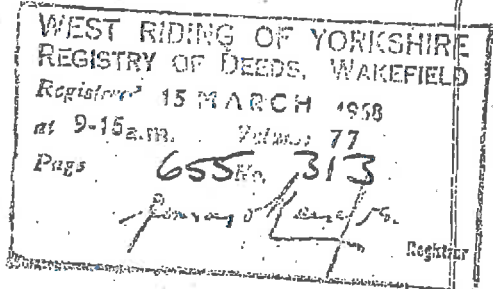 WEST RIDING OF YORKSHIRE
REGISTRY OF DEEDS, WAKEFIELD
Registered 15 MARCH 1958
at 9-15 a.m. Volume 77
Page 655 No. 313
Registrar